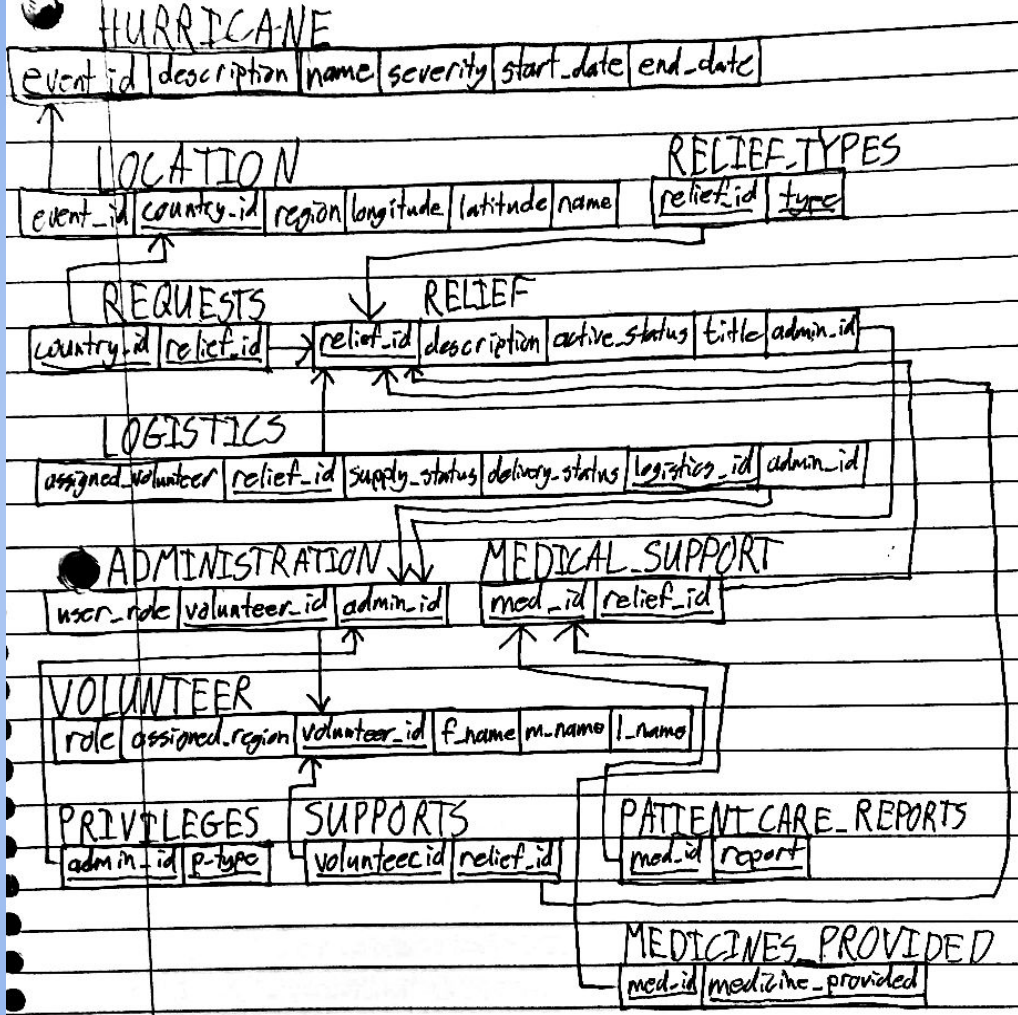 HURRICANE
event_id description name severity start_date end_date
LOCATION
event_id country_id region longitude latitude name
RELIEF_TYPES
relief_id type
REQUESTS
country_id relief_id
RELIEF
relief_id description active_status title admin_id
LOGISTICS
assigned_volunteer relief_id supply_status delivery_status logistics_id admin_id
ADMINISTRATION
user_role volunteer_id admin_id
MEDICAL_SUPPORT
med_id relief_id
VOLUNTEER
role assigned_region volunteer_id f_name m_name l_name
PRIVILEGES
admin_id p-type
SUPPORTS
volunteer id relief_id
PATIENT CARE_REPORTS
med_id report
MEDICINES_PROVIDED
med_id medicine_provided